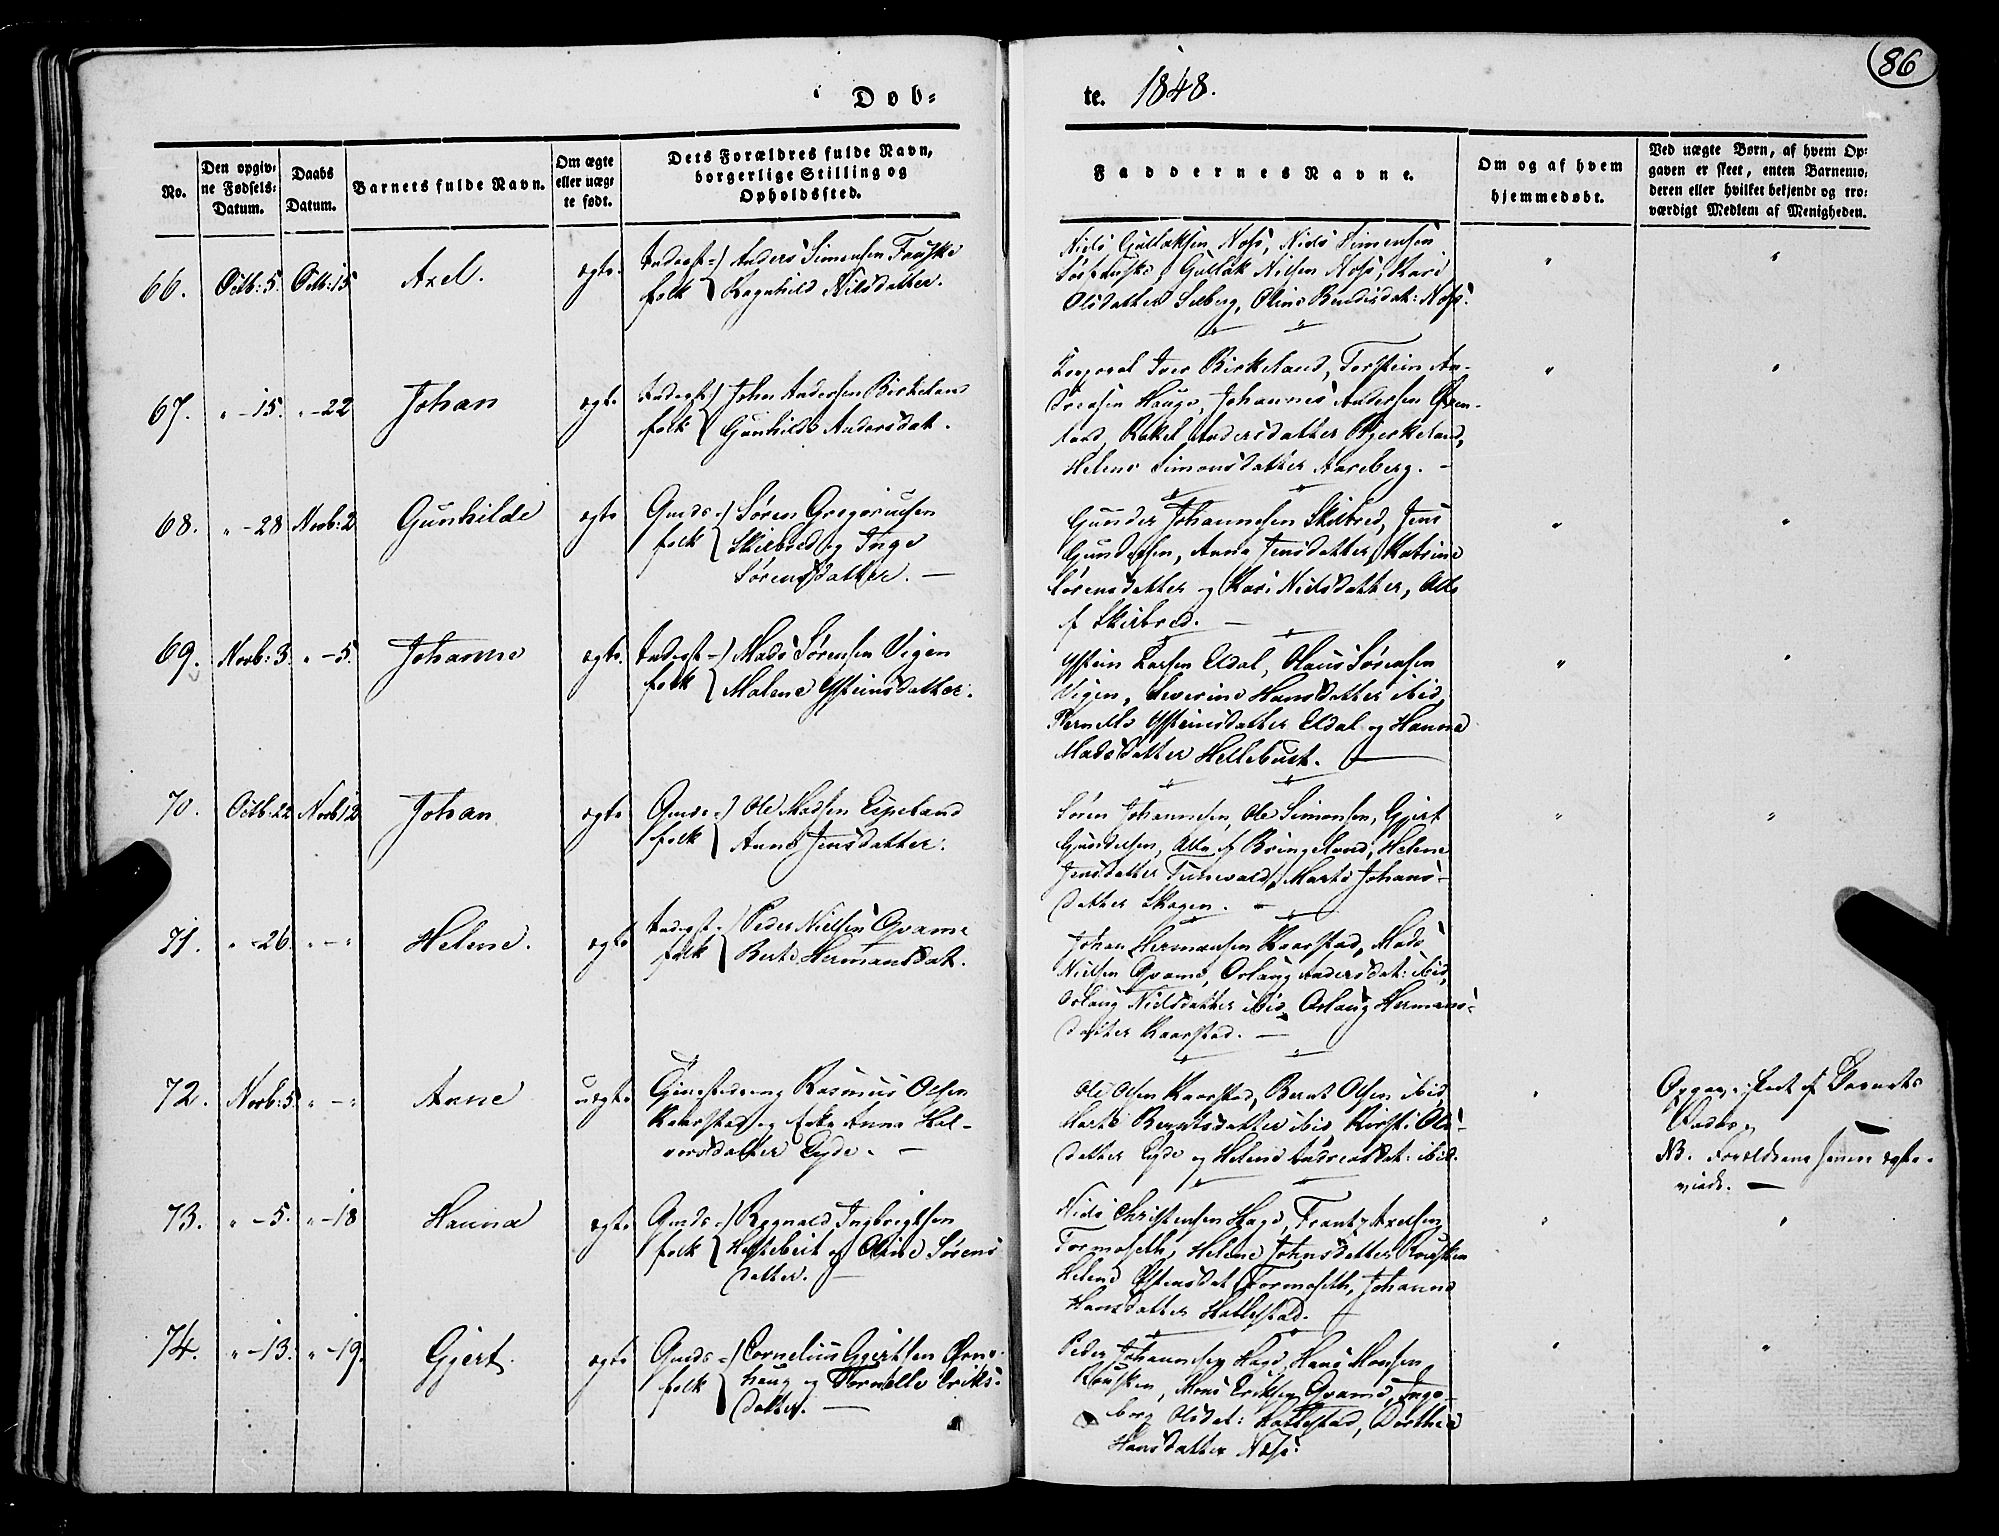 86
Døb=
te. 1848.
No.
Den opgiv=
ne Fødsels=
Datum.
Daabs
Datum.
Barnets fulde Navn.
Om ægte
eller uæg=
te født.
Dets Forældres fulde Navn,
borgerlige Stilling og
Opholdssted.
Faddernes Navne.
Om og af hvem
hjemmedøbt.
Ved uægte Børn, af hvem Op=
gaven er skeet, enten Barnemo=
deren eller hvilket bekjendt og tro=
værdigt Medlem af Menigheden.
66. Octb: 5. Octb: 15 Axel. ægte.
folk
Anders Simensen Fauske
Ragnhild Nilsdatter.
Niels Gullaksen Næss, Niels Simensen
Gullak Nilsen Næss, Kari
Olsdatter Seeberg, Oline Bendixdat: Næss.
67. " - 15. " - 22 Johan ægte
folk
John Andersen Birkeland
Gunhilde Andersdat.
Korporal Iver Birkeland, Torstein An-
dreasen Hauge, Johannes Andersen
Rakel Andersdatter Bjerkeland,
Helene Simonsdatter Aareberg. -
68. " - 28 Novb: 2 Gunhilde ægte
Gmds=
folk
Søren Gregoriusen
Skilbred og Inge
Sørensdatter. -
Gunder Johannesen Skilbred, Jens
Gundersen, Anna Jensdatter, Katrine
Sørensdatter og Kari Nielsdatter, Alle
af Skilbred. -
69. Novb: 3. " - 5. Johanne ægte.
folk
Mads Sørensen Vigen
Malene Østeinsdatter.
Østein Larsen Eldal, Hans Sørensen
Vigen, Severine Hansdatter ibid,
Pernille Østeinsdatter Eldal og Hanna
Madsdatter Hellebust. -
70. Octb: 22 Novb 12 Johan ægte
Gmds=
folk
Ole Madsen Espeland
Anne Jensdatter.
Søren Johannesen, Ole Simonsen, Gjert
Gundersen, Alle af Bringeland, Helene
Jensdatter Tunevald, Marte Johans-
datter Skogen. -
71. " - 26 " - " Helene. ægte
folk
Peder Nielsen Qvame
Berte Hermansdat.
Johan Hermansen Kaarstad, Mads
Nielsen Qvame, Orlaug Andersdat: ibid,
Orlaug Nielsdatter ibid, Orlaug Hermans-
datter Kaarstad. -
72. Novb: 5. " - " Anne uægte
Rasmus Olsen
Kaarstad og Anna Hal-
vorsdatter Eyde. -
Ole Olsen Kaarstad, Bernt Olsen ibid,
Marte Berntsdatter ibid Kirsti Ols-
datter Eyde og Helene Andreasdat: ibid.
Opgaven skeet af Barnets
Fader,
NB. Forældrene senere ægte-
viede. -
73. " - 5. " - 18 Hanna ægte
Gmds=
folk
Ragnald Ingbrigtsen
Hestebeit og Oline Sørens
datter. -
Niels Christensen Hage, Frantz Axelsen
Tormoseth, Helene Johnsdatter
Helene Østensdat Tormoseth, Johanne
Hansdatter Hatlestad.
74. " - 13. " - 19. Gjert. ægte
Gmds=
folk
Cornelius Gjertsen Ørne-
haug og Pernelle Eriks-
datter. -
Peder Johannesen Hage, Hans Monsen
Mons Eriksen Qvame, Inge-
borg Olsdat: Hatlestad, Dorthea
Hansdatter Næss.